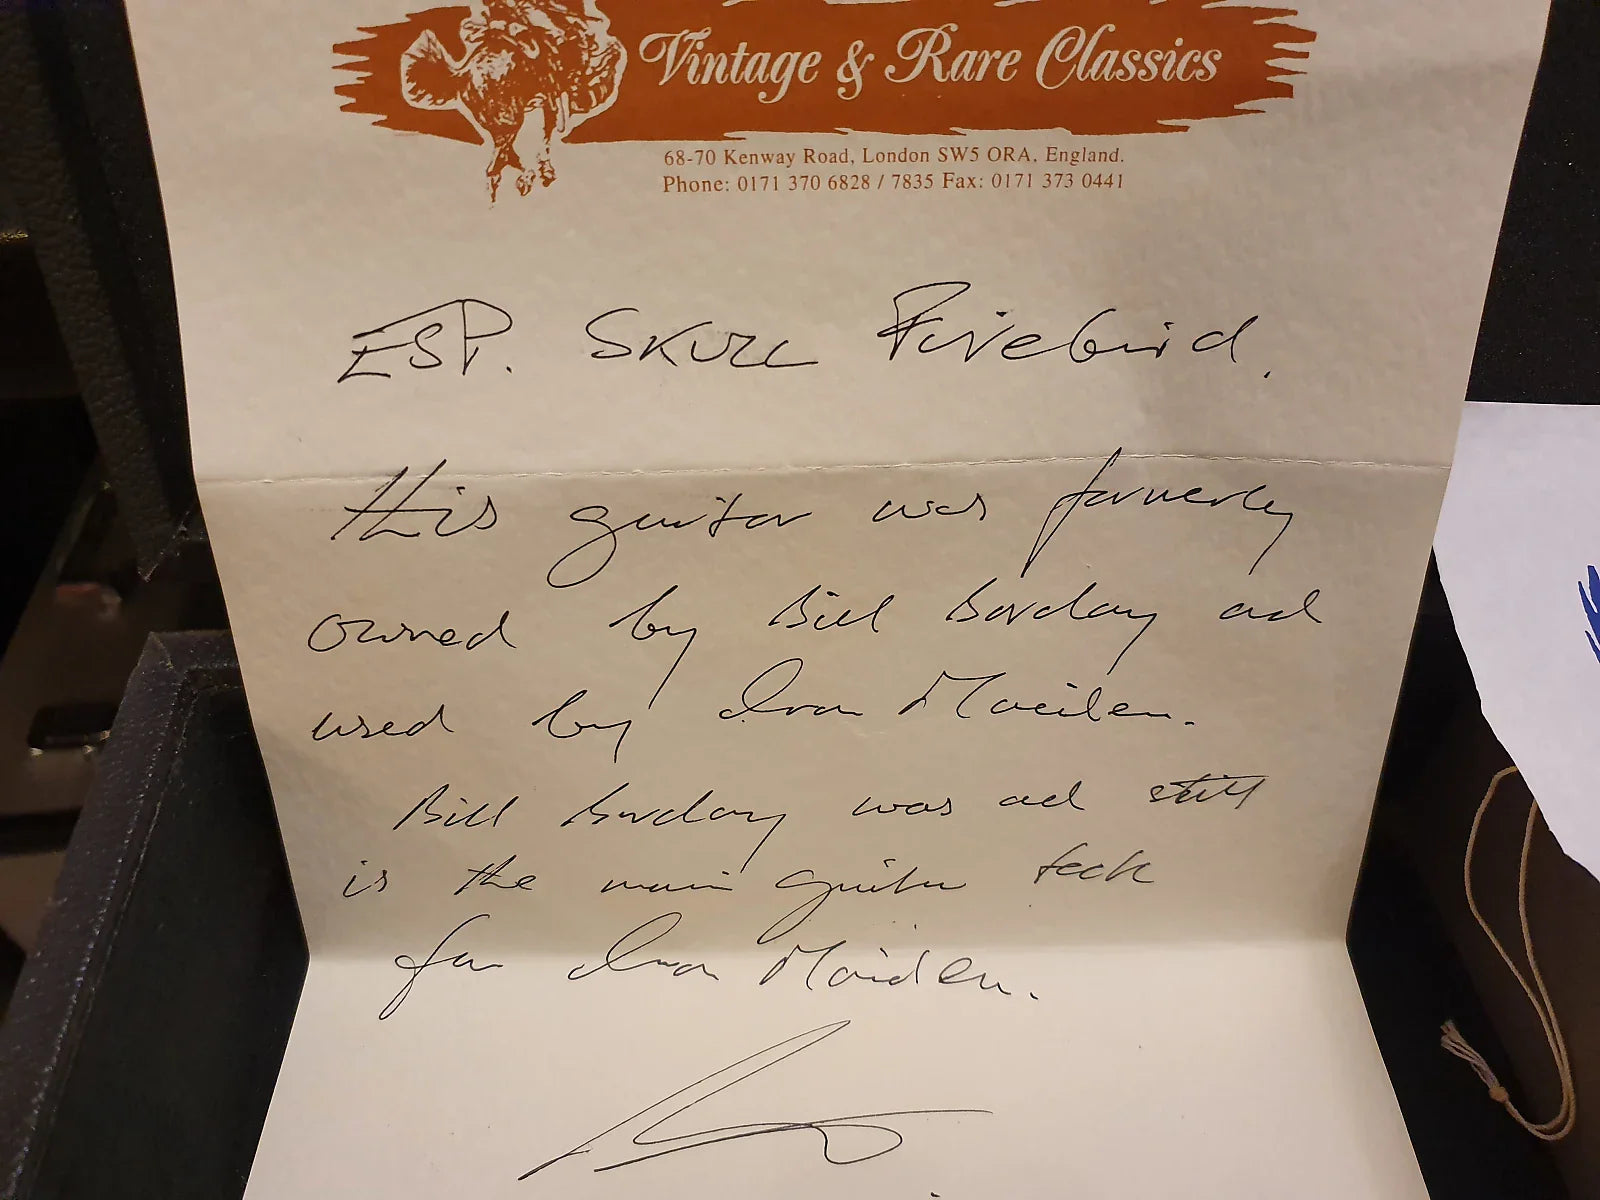 Vintage & Rare Classics
68-70 Kenway Road, London SW5 ORA, England.
Phone: 0171 370 6828 / 7835 Fax: 0171 373 0441
ESP. SKULL Firebird.
this guitar was formerly
owned by Bill Barclay ad
used by Iron Maeiden.
Bill Barclay was ad still
is the main guitar tech
for Iron Maiden.